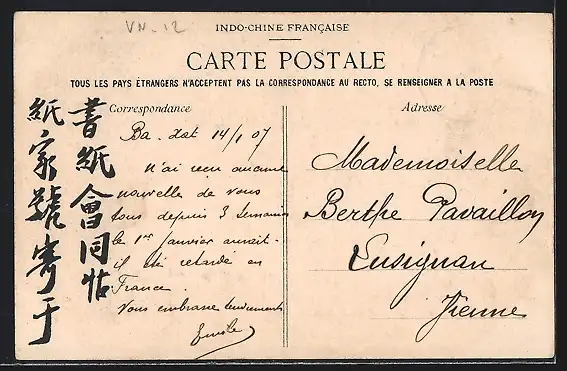 VN-12
INDO-CHINE FRANÇAISE
CARTE POSTALE
TOUS LES PAYS ÉTRANGERS N'ACCEPTENT PAS LA CORRESPONDANCE AU RECTO, SE RENSEIGNER A LA POSTE
Correspondance
Ba-Xat 14/1 07
N'ai reçu aucune
nouvelle de vous
tous depuis 3 semaines
le 1er Janvier aurait-
il été retardé en
France.
Vous embrasse tendrement
Emile
書紙會同帖
紙家號寄于
Adresse
Mademoiselle
Berthe Pavaillon
Lusignan
Vienne